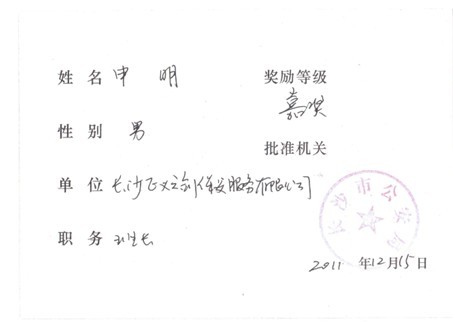 姓名 申明
性别 男
单位 长沙正义之剑保安服务有限公司
职务 班长
奖励等级
嘉奖
批准机关
长沙市公安局
2011年12月15日